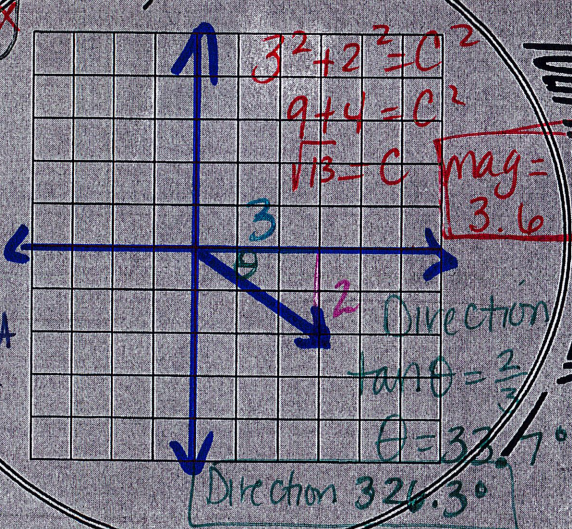 3² + 2² = C²
9 + 4 = C²
√13 = C
mag =
3.6
3
θ
2
A
Direction
tan θ = 2/3
θ = 33.7°
Direction 326.3°